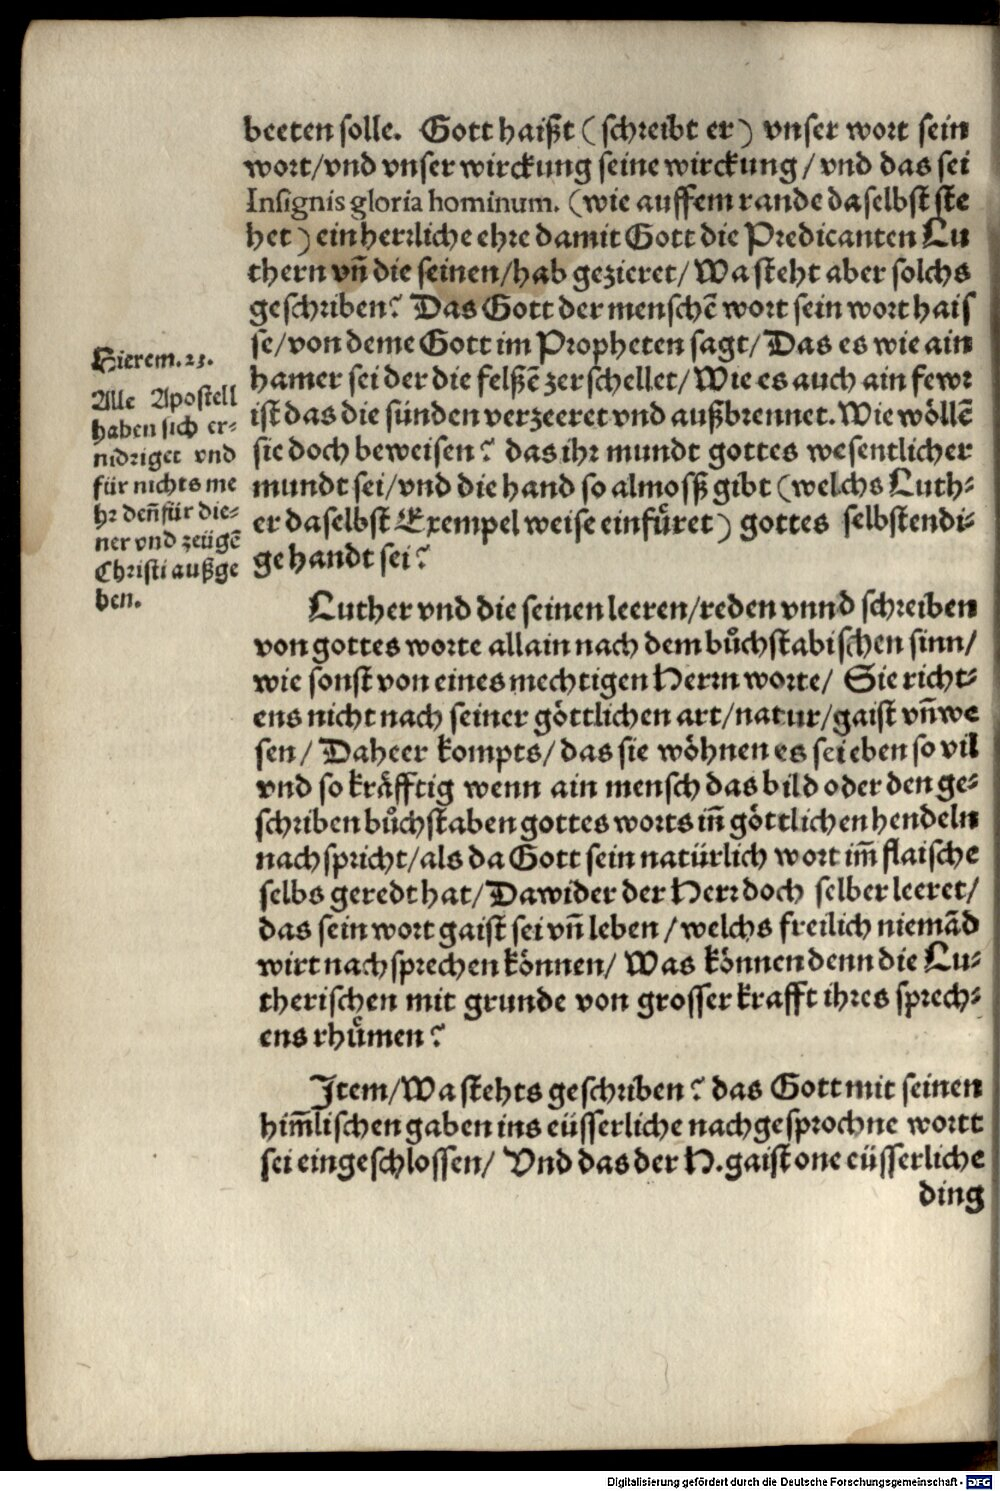 beeten solle. Gott haißt (schreibt er) vnser wort sein
wort/vnd vnser wirckung seine wirckung/ vnd das sei
Insignis gloria hominum. (wie auffem rande daselbst ste
het) ein herrliche ehre damit Gott die Predicanten Lu
thern vñ die seinen/hab gezieret/ Wa steht aber solchs
geschriben? Das Gott der menschẽ wort sein wort hais
se/von deme Gott im Propheten sagt/ Das es wie ain
hamer sei der die felßẽ zerschellet/ Wie es auch ain fewr
ist das die sünden verzeeret vnd außbrennet. Wie wöllẽ
sie doch beweisen? das ihr mundt gottes wesentlicher
mundt sei/vnd die hand so almosß gibt (welchs Luth-
er daselbst Exempel weise einfüret) gottes selbstendi-
ge handt sei?
Hierem.23.
Alle Apostell
haben sich er-
nidriget vnd
für nichts me
hr deñ für die-
ner vnd zeügẽ
Christi außge
ben.
Luther vnd die seinen leeren/reden vnnd schreiben
von gottes worte allain nach dem bůchstabischen sinn/
wie sonst von eines mechtigen Herrn worte/ Sie richt-
ens nicht nach seiner göttlichen art/natur/gaist vñ we
sen/ Daheer kompts/das sie wöhnen es sei eben so vil
vnd so kräfftig wenn ain mensch das bild oder den ge-
schriben bůchstaben gottes worts iñ göttlichen hendeln
nachspricht/als da Gott sein natürlich wort im̃ flaische
selbs geredt hat/Dawider der Herr doch selber leeret/
das sein wort gaist sei vñ leben/welchs freilich niemãd
wirt nachsprechen können/ Was können denn die Lu-
therischen mit grunde von grosser krafft ihres sprech-
ens rhümen?
Item/Wa stehts geschriben? das Gott mit seinen
him̃lischen gaben ins eüsserliche nachgesprochne wortt
sei eingeschlossen/ Vnd das der H.gaist one eüsserliche
ding
Digitalisierung gefördert durch die Deutsche Forschungsgemeinschaft - DFG